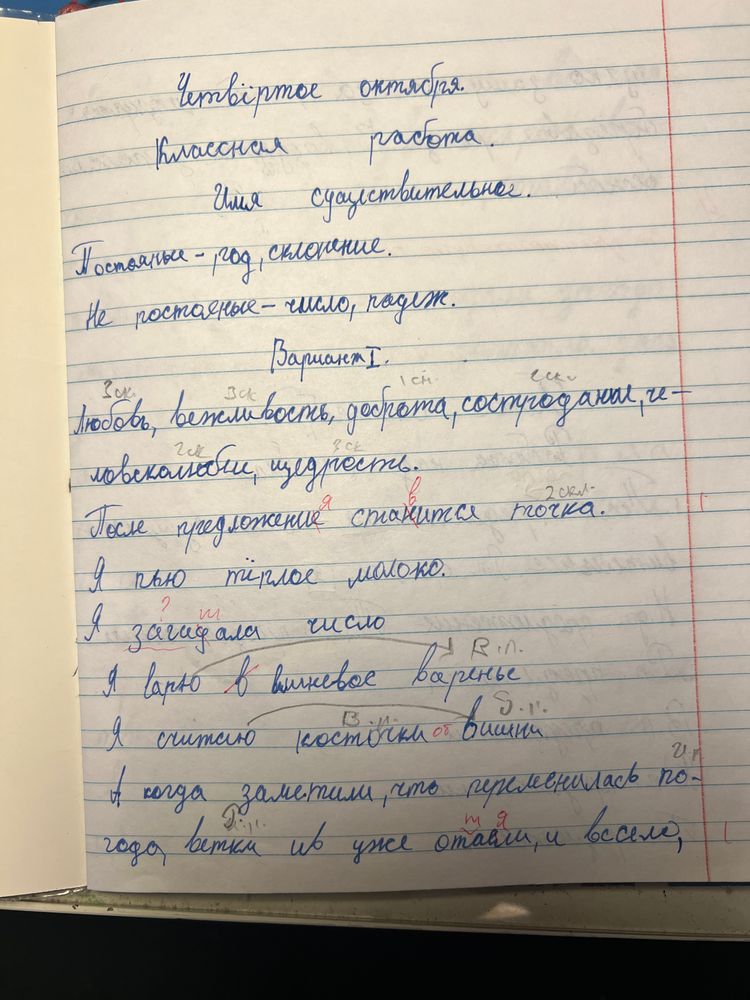 Четвёртое октября.
Классная работа.
Имя существительное.
Постояные -, род, склонение.
Не постояные - число, падеж.
Вариант I.
3 ск. 3 ск 1 ск. 2 ск.
Любовь, вежливость, доброта, че-
2 ск 3 ск
ловеколюбие, щедрость.
я в 2 скл.
После предложение станится точка.
Я пью тёплое молоко.
? т
Я загадала число
В.п.
Я варю в вишневое варенье
В.п.
Я считаю косточки от вишни
И.п.
А когда заметили, что переменилась по-
т я
года, ветки ив уже отаяли, и весело,